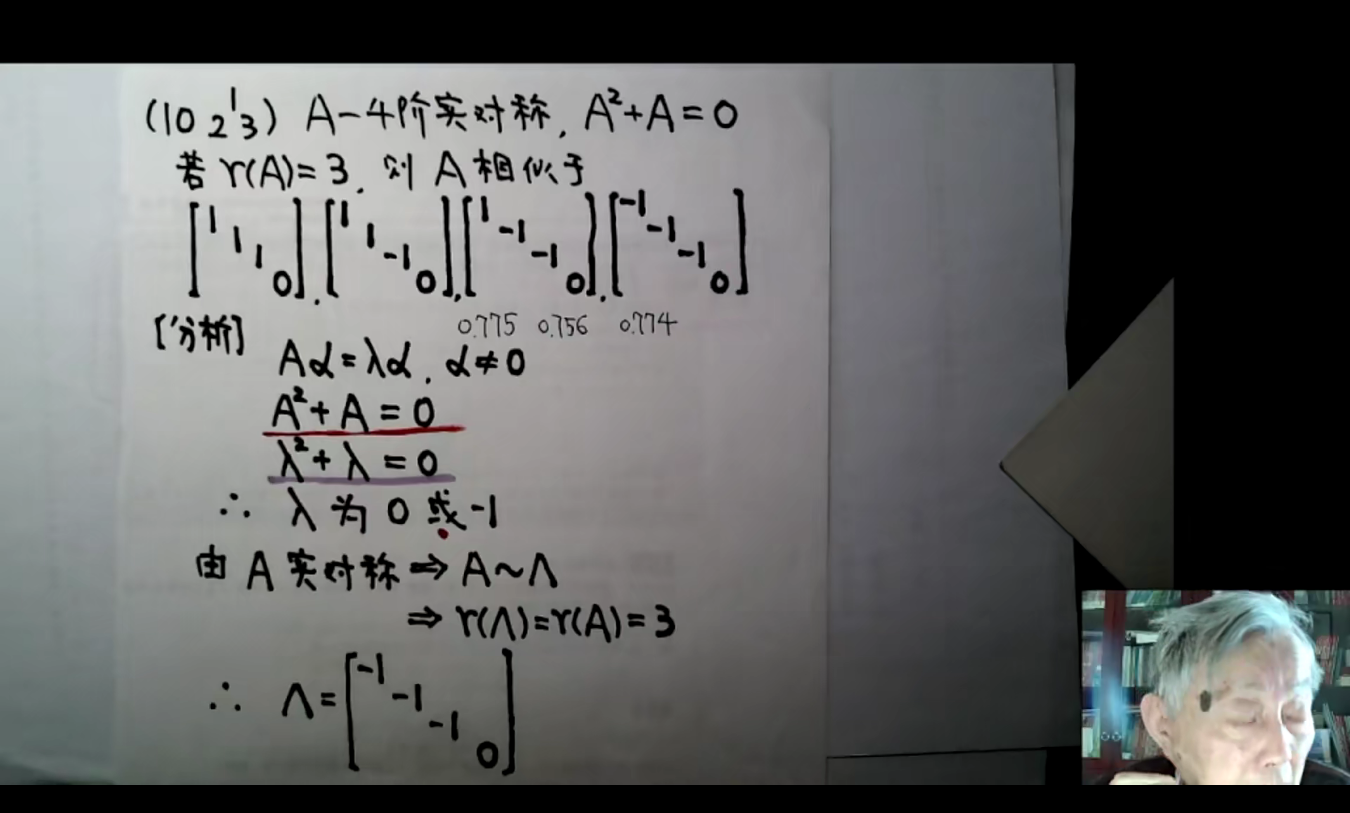 (10 2 1 3) A-4阶实对称, A²+A=0
若 r(A)=3, 则 A 相似于
[1 1 1 0], [1 1 -1 0], [1 -1 -1 0], [-1 -1 -1 0]
0.775 0.756 0.774
[分析]
Aα=λα, α≠0
A²+A=0
λ²+λ=0
∴ λ 为 0 或 -1
由 A 实对称 ⇒ A~Λ
⇒ r(Λ)=r(A)=3
∴ Λ=[-1 -1 -1 0]